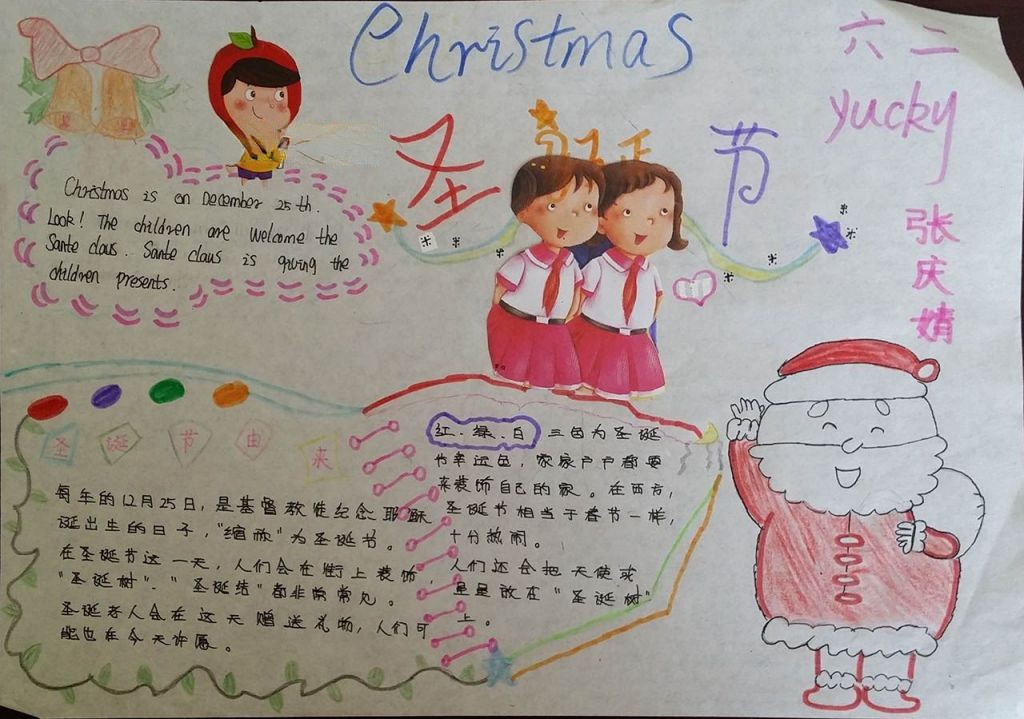 Christmas
六二
yucky
张庆婧
圣诞节
Christmas is on December 25th.
Look! The children are welcome the
Sante claus. Sante claus is giving the
children presents.
圣诞节由来
每年的12月25日，是基督教徒纪念耶稣
诞出生的日子，"缩称"为圣诞节。
在圣诞节这一天，人们会在街上装饰，
"圣诞树"."圣诞结"都非常常见。
圣诞老人会在这天赠送礼物，人们可
能也在今天许愿。
红.绿.白 三色为圣诞
节幸运色，家家户户都要
来装饰自己的家。在西方，
圣诞节相当于春节一样，
十分热闹。
人们还会把天使或
星星放在"圣诞树"
上。